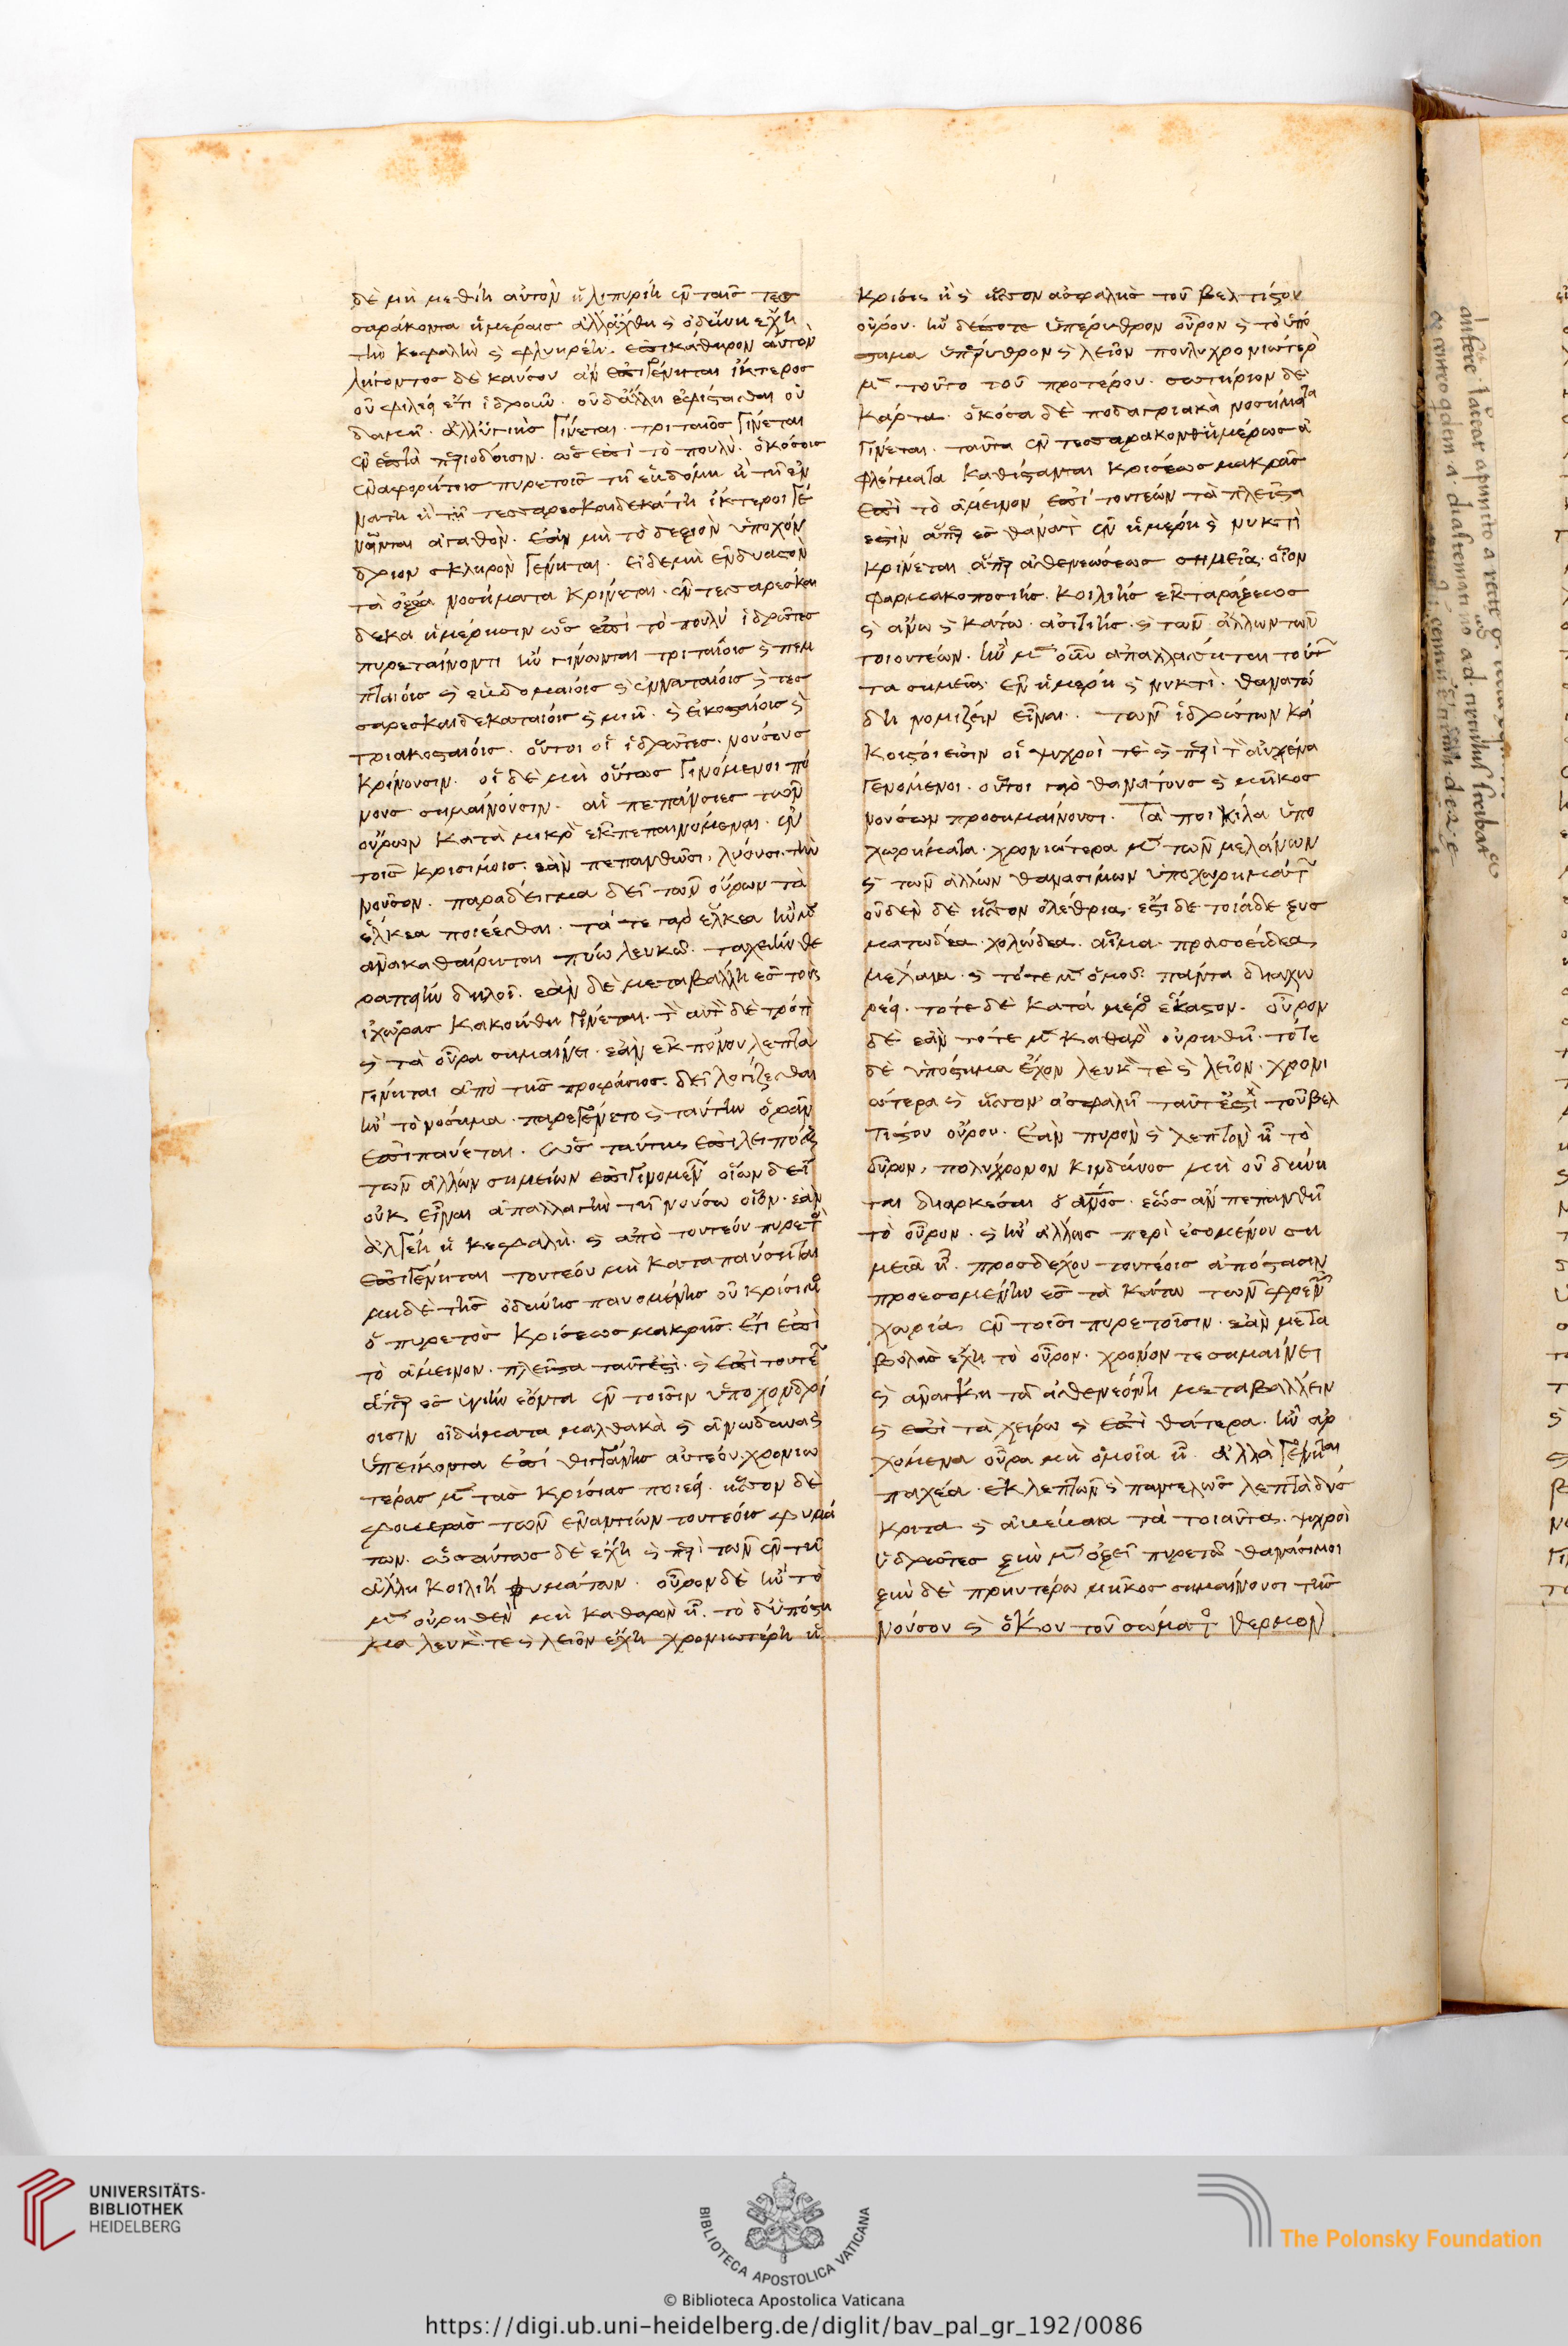 δὲ μὴ μεθίη αὐτὸν ἡ λιπυρίη ἐν ταῖς τεσ
σαράκοντα ἡμέραις ἀλλὰ ἄχθη ς ὀδύνη ἔχη
τὴν κεφαλὴν ς φλυηρέη. αὐτὸν
λήγοντος δὲ καύσου ἂν ἐπιγένηται ἴκτερος
οὐ φιλέει ἔτι ἱδροῦν. οὐδ ἄλλη ἀφίστασθαι οὐ
δαμῆ. ἀλλ ὑγιὴς γίνεται. τριταῖος γίνεται
ἐν ἑπτὰ περιόδοισιν. ὡς ἐπὶ τὸ πουλύ. ὁκόσοις
ἐν ἀφορήτοις πυρετοῖς τῆ ἑβδόμη ἢ τῆ ἐν
νάτη ἢ τῆ τεσσαρεσκαιδεκάτη ἴκτεροι γέ
νωνται ἀγαθόν. ἐὰν μὴ τὸ δεξιὸν ὑποχόν
δριον σκληρὸν γένηται. εἰ δὲ μὴ ἐνδυαστὸν
τὰ ὀξέα νοσήματα κρίνεται. ἐν τεσσαρεσκαι
δεκα ἡμέρησιν ὡς ἐπὶ τὸ πουλὺ ἱδρῶτες
πυρεταίνοντι ἢν γίνωνται τριταίοις ς πεμ
πταίοις ς ἑβδομαίοις ς ἐνναταίοις ς τεσ
σαρεσκαιδεκαταίοις ς μιῆ. ς εἰκοσταίοις ς
τριακοσταίοις. οὗτοι οἱ ἱδρῶτες. νούσους
κρίνουσιν. οἱ δὲ μὴ οὕτως γινόμενοι πό
νους σημαίνουσιν. αἱ πεπάνσιες τῶν
οὔρων κατὰ μικρὸν ἐκπεπαινόμεναι. ἐν
τοῖς κρισίμοις. ἐὰν πεπανθῶσι, λύουσι τὴν
νοῦσον. παράδειγμα δεῖ τῶν οὔρων τὰ
ἕλκεα ποιέεσθαι. τά τε γὰρ ἕλκεα ἢν μὲν
ἀνακαθαίρηται πύω λευκῶ. ταχείην θε
ραπείην δηλοῖ. ἐὰν δὲ μεταβάλλη ἐς τοὺς
ἰχῶρας κακοήθη γίνεται. τὸν αὐτὸν δὲ τρόπον
ς τὰ οὖρα σημαίνει. ἐὰν ἐκ πόνου λεπτὰ
γίνηται ἀπὸ τῆς προφάσιος. δεῖ λογίζεσθαι
ἢν τὸ νόσημα. παρεγένετο ς ταύτην ὁρᾶν
ἐπιπαύεται. ὡς ταύτης ἐπιλειπούσης
τῶν ἄλλων σημείων ἐπιγινομένων οἵων δεῖ
οὐκ εἶναι ἀπαλλαγὴν τῆ νούσω οἷον. ἐὰν
ἀλγέη ἡ κεφαλή. ς ἀπὸ τουτέου πυρετὸς
ἐπιγένηται τουτέου μὴ καταπαύσηται
μηδὲ τῆς ὀδύνης παυομένης οὐ κρίσιμος
ὁ πυρετὸς κρίσεως μακρῆς. ἔτι ἐπὶ
τὸ ἄμεινον. πλεῖστα ταῦτ ἐστὶ. ς ἐπὶ τουτέων
ἅπερ ἐς ὑγιείην ἐόντα ἐν τοῖσιν ὑποχονδρί
οισιν οἰδήματα μαλθακὰ ς ἀνώδυνα ς
ὑπείκοντα ἐπὶ θιγγάνης αὐτέου. χρονιω
τέρας μὲν τὰς κρίσιας ποιέει. ἧσσον δὲ
φοβερὰς τῶν ἐναντίων τουτέοις φυμά
των. ὡσαύτως δὲ ἔχη ς περὶ τῶν ἐν τῆ
ἄλλη κοιλίη φυμάτων. οὖρον δὲ ἢν τὸ
μὲν οὐρηθὲν μὴ καθαρὸν ἦ. τὸ δ ὑπόστη
μα λευκόν τε ς λεῖον ἔχη χρονιωτέρη ἡ
κρίσις ἢ ς ἧσσον ἀσφαλὴς τοῦ βελτίστου
οὔρου. ἢν δέ ποτε ὑπέρυθρον οὖρον ς τὸ ὑπό
σταμα ὑπέρυθρον ς λεῖον πουλυχρονιώτερον
μὲν τοῦτο τοῦ προτέρου. σωτήριον δὲ
κάρτα. ὁκόσα δὲ ποδαγριακὰ νοσήματα
γίνεται. ταῦτα ἐν τεσσαράκονθ ἡμέρως ἀ
φλέγματα καθίσανται κρισέως μακρᾶς
ἐπὶ τὸ ἄμεινον ἐπὶ τουτεών τὰ πλεῖστα
ἐστὶν ἅπερ ἐς θάνατον ἐν ἡμέρη ς νυκτὶ
κρίνεται ἅπερ ἀσθενεώσεως σημεῖα. οἷον
φαρμακοποσίης. κοιλίης ἐκταράξεως
ς ἄνω ς κάτω. ἀσιτίης. ς τῶν ἄλλων τῶν
τοιουτέων. ἢν μὲν οὖν ἀπαλλάσηται τοῦτον
τὰ σημεῖα. ἐν ἡμέρη ς νυκτὶ. θανατώ
δη νομίζειν εἶναι. τῶν ἱδρώτων κά
κιστοι εἰσιν οἱ ψυχροὶ τὲ ς περὶ τὸν αὐχένα
γενόμενοι. οὗτοι γὰρ θανάτους ς μῆκος
νούσων προσημαίνουσι. Τὰ ποικίλα ὑπο
χωρήματα. χρονιώτερα μὲν τῶν μελάνων
ς τῶν ἄλλων θανασίμων ὑποχωρημάτων
οὐδὲν δὲ ἧσσον ὀλέθρια. ἔστι δὲ τοιάδε ξυσ
ματώδεα. χολώδεα. αἷμα. πρασοείδεα
μέλανα. ς τότε μὲν ὁμοῦ πάντα διαχω
ρέει. τοτὲ δὲ κατὰ μέρος ἕκαστον. οὖρον
δὲ ἐὰν τότε μὲν καθαρὸν οὐρηθῆ. τότε
δὲ ὑπόστημα ἔχον λευκόν τὲ ς λεῖον. χρονι
ώτερα ς ἧσσον ἀσφαλῆ ταῦτ ἐστὶ τοῦ βελ
τίστου οὔρου. ἐὰν πυρὸν ς λεπτὸν ἦ τὸ
οὖρον, πολυχρόνον κινδύνος μὴ οὐ δύνη
ται διαρκέσαι ὁ ανος. ἕως ἂν πεπανθῆ
τὸ οὖρον. ς ἢν ἄλλως περὶ ἐσομένου ση
μεῖα ἦ. προσδέχου τουτέοις ἀπόστασιν
προεσομένην ἐς τὰ κάτω τῶν φρενῶν
χωρία. ἐν τοῖσι πυρετοῖσιν. ἐὰν μετα
βολὰς ἔχη τὸ οὖρον. χρόνον τε σημαίνει
ς ἀνάγκη τῶ ἀσθενεόντι μεταβάλλειν
ς ἐπὶ τὰ χείρω ς ἐπὶ θάτερα. ἢν ἀρ
χόμενα οὖρα μὴ ὁμοῖα ἦ. ἀλλὰ γένηται
παχέα. ἐκ λεπτῶν ς παντελῶς λεπτὰ δύσ
κριτα ς ἀβέβαια τὰ τοιαῦτα. ψυχροὶ
ἱδρῶτες ξὺν μὲν ὀξεῖ πυρετῶ θανάσιμοι
ξὺν δὲ πρηυτέρω μῆκος σημαίνουσι τῆς
νούσου ς ὅκου τοῦ σώματος θερμὸν
UNIVERSITÄTS-
BIBLIOTHEK
HEIDELBERG
BIBLIOTECA APOSTOLICA VATICANA
The Polonsky Foundation
© Biblioteca Apostolica Vaticana
https://digi.ub.uni-heidelberg.de/diglit/bav_pal_gr_192/0086